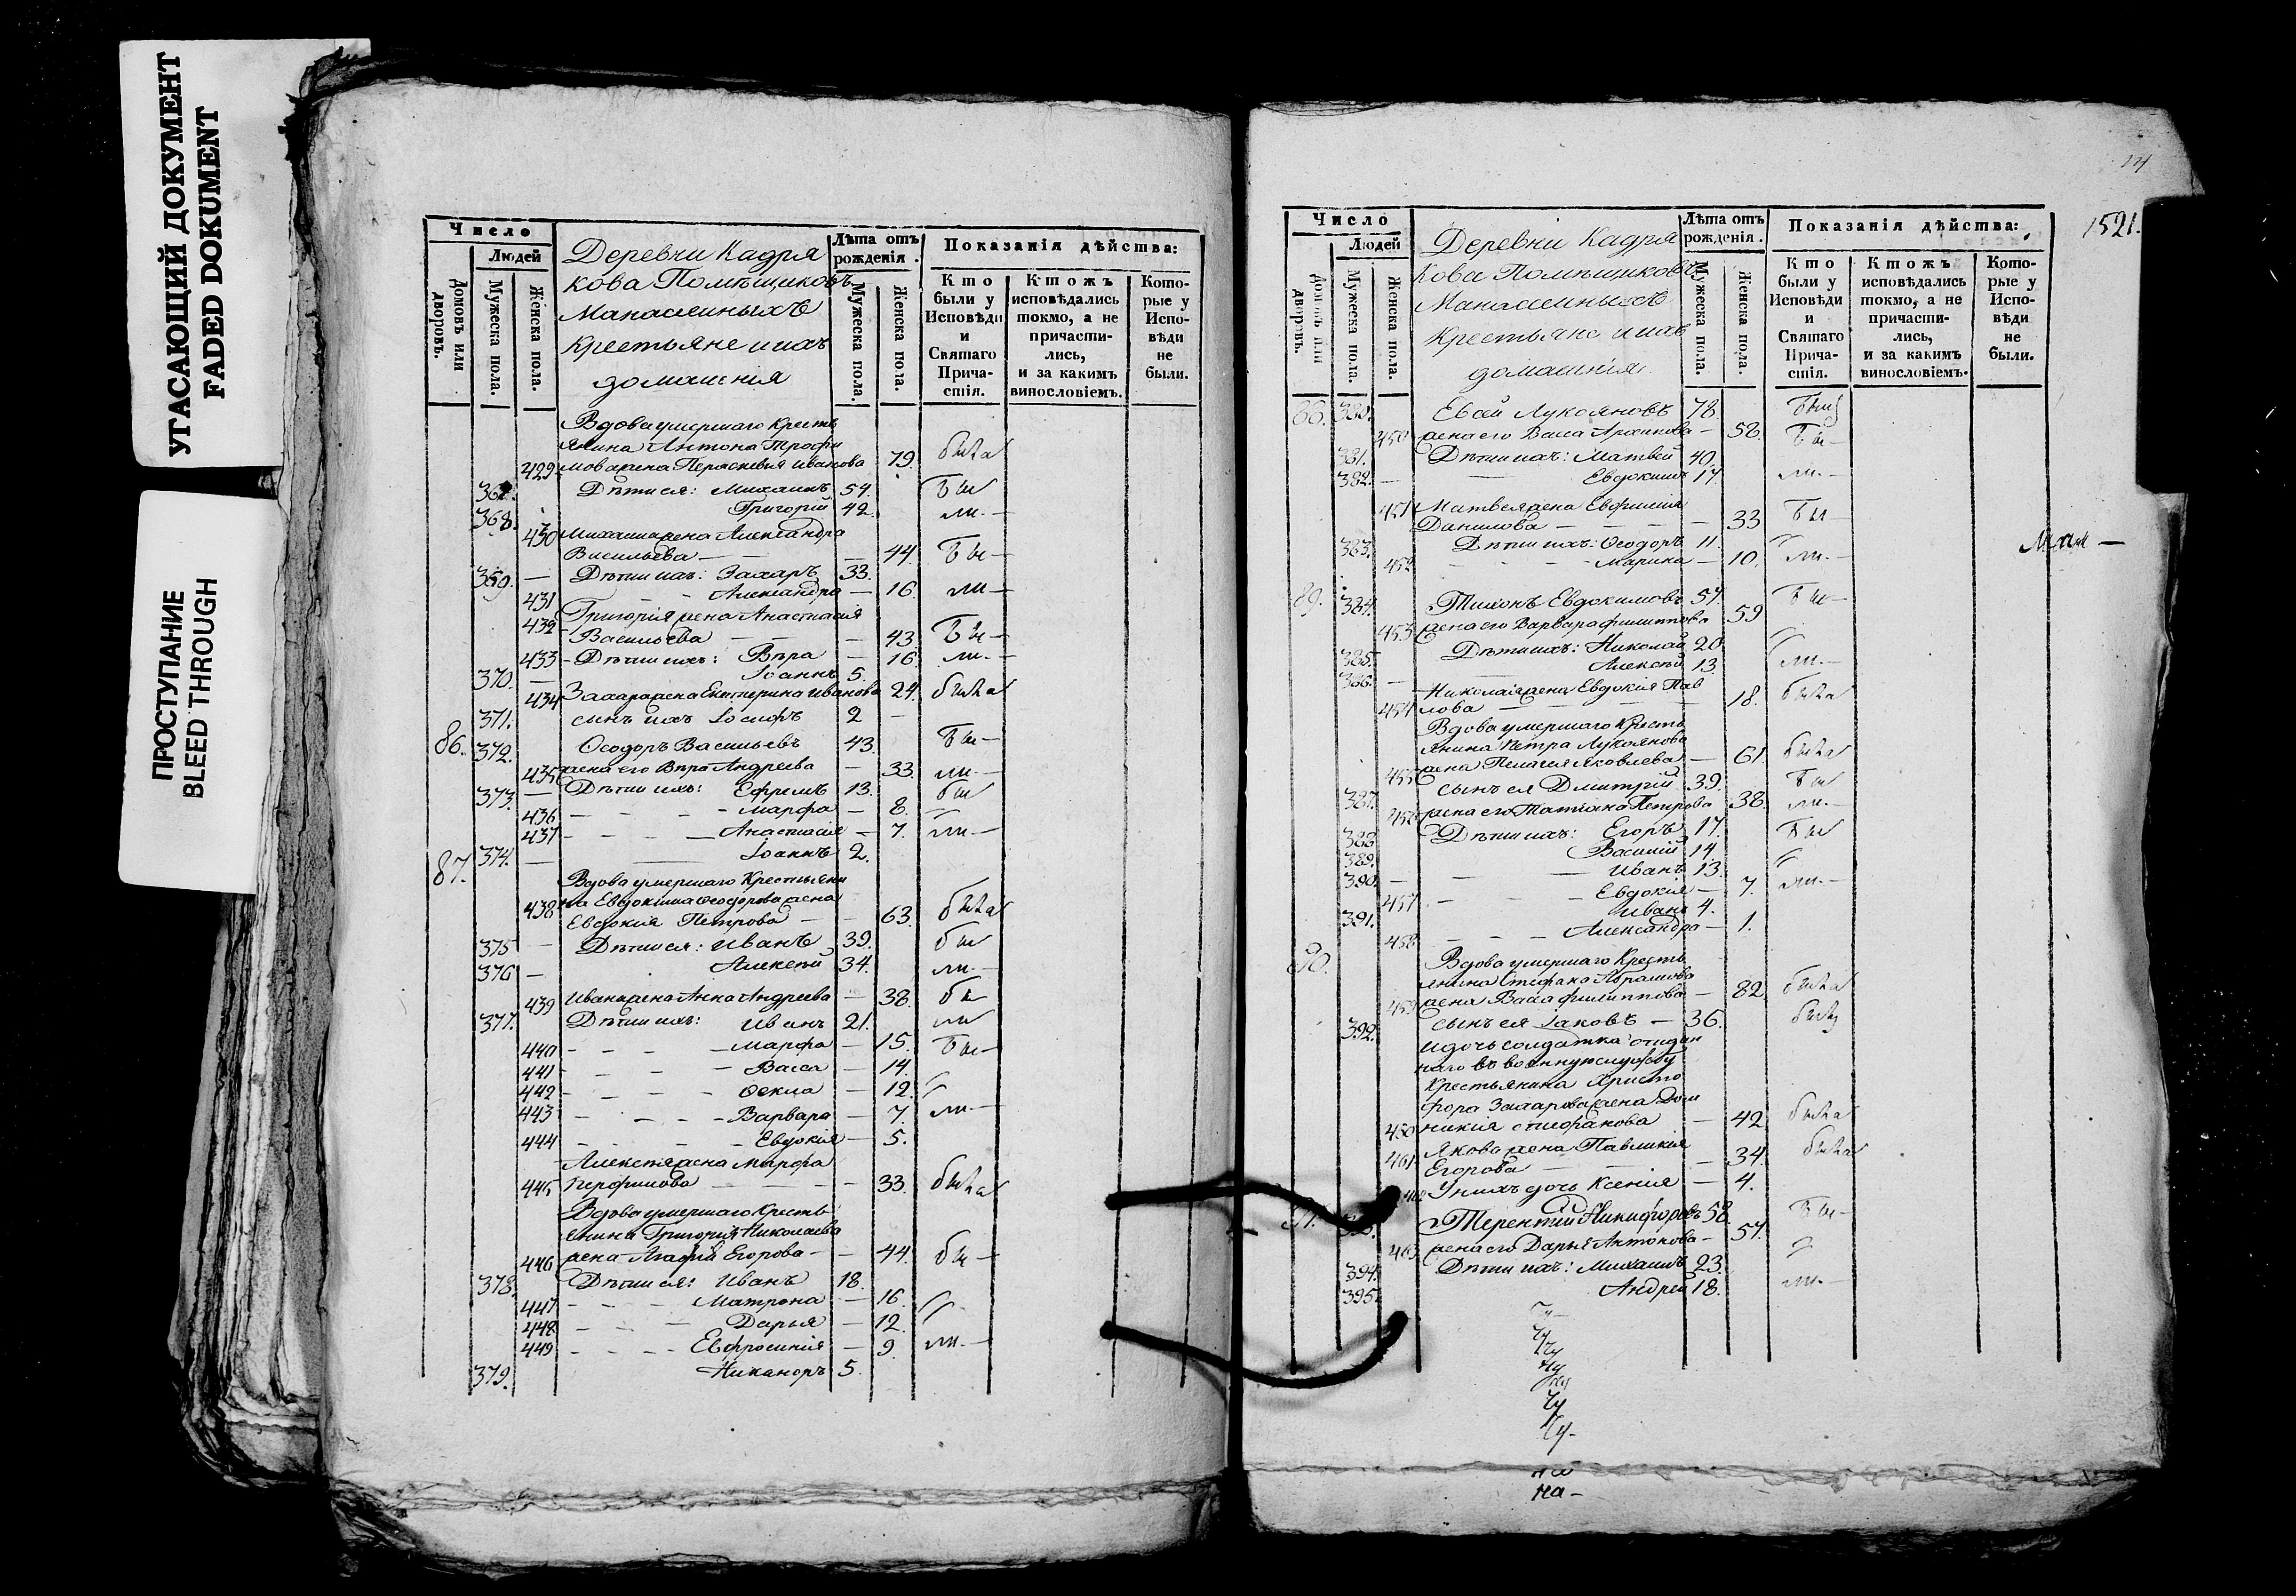 УГАСАЮЩИЙ ДОКУМЕНТ
FADED DOKUMENT
ПРОСТУПАНИЕ
BLEED THROUGH
Число
Людей
Домовъ или дворовъ.
Мужеска пола.
Женска пола.
Деревни Кадря
кова Помѣщиковъ
Манасеиныхъ
Крестьяне и ихъ
домашнія
Лѣта отъ рожденія.
Мужеска пола.
Женска пола.
Показанія дѣйства:
Кто были у Исповѣди и Святаго Причастія.
Ктожъ исповѣдались токмо, а не причастились, и за какимъ винословіемъ.
Которые у Исповѣди не были.
Вдова умершаго кресть
янина Антона Трофи
429 мова жена Перасковія Иванова 79. была
Дѣти ея: Михаилъ 54. бы
368. Григорій 42. ли.
430 Михаила жена Александра
Васильева 44. бы
369. Дѣти ихъ: Захаръ 33.
431 Александра 16. ли
432 Григорія жена Анастасія
Васильева 43 бы
433 Дѣти ихъ: Вѣра 16. ли.
370. Іоаннъ 5.
434 Захара жена Екатерина Иванова 24. была
371. сынъ ихъ Іосифъ 2
86. 372. Ѳеодоръ Васильевъ 43. бы
435 жена его Вѣра Андреева 33. ли.
373. Дѣти ихъ: Ефремъ 13. бы
436 Марфа 8.
437 Анастасія 7. ли
374. Іоаннъ 2.
87. Вдова умершаго Крестьяни
438 на Евдокима Ѳеодорова жена
Евдокія Петрова 63 была
375 Дѣти ея: Иванъ 39. бы
376 Алексѣй 34. ли.
439 Ивана жена Анна Андреева 38. бы
377. Дѣти ихъ: Иванъ 21. ли
440 Марфа 15. бы
441 Васса 14.
442 Ѳекла 12.
443 Варвара 7. ли.
444 Евдокія 5.
Алексѣя жена Марфа
445 Перфилова 33. была
Вдова умершаго Кресть
янина Григорія Николаева
446 жена Агафія Егорова 44. бы
378. Дѣти ея: Иванъ 18.
447 Матрона 16.
448 Дарья 12.
449 Евфросинія 9. ли.
379. Никаноръ 5.
1521.
Число
Людей
Домовъ или дворовъ.
Мужеска пола.
Женска пола.
Деревни Кадря
кова Помѣщиковъ
Манасеиныхъ
Крестьяне и ихъ
домашнія
Лѣта отъ рожденія.
Мужеска пола.
Женска пола.
Показанія дѣйства:
Кто были у Исповѣди и Святаго Причастія.
Ктожъ исповѣдались токмо, а не причастились, и за какимъ винословіемъ.
Которые у Исповѣди не были.
380. Лукояновъ 78.
450 жена его Васса Архипова 58. бы
381. Дѣти ихъ: Матвей 40.
382. Евдокимъ 17 ли.
451 Матвея жена Евфимія
Данилова 33 бы
383. Дѣти ихъ: Ѳеодоръ 11.
452 Марина 10. ли.
89. 384. Тихонъ Евдокимовъ 57. бы
453 жена его Варвара Филиппова 59
385. Дѣти ихъ: Николай 20
386. Алексѣй 13. ли.
Николая жена Евдокія Пав
454 лова 18. была
Вдова умершаго Кресть
янина Петра Лукоянова
455 жена Пелагея Яковлева 61. была
387. сынъ ея Дмитрій 39. бы
456 жена его Татіана Петрова 38. ли.
388 Дѣти ихъ: Егоръ 17. бы
389. Василій 14.
390. Иванъ 13.
457 Евдокія 7. ли.
391. Иванъ 4.
458 Александра 1.
90. Вдова умершаго Кресть
янина Стефана Абрамова
459 жена Васса Филиппова 82 была
392. сынъ ея Іаковъ 36.
и дочь солдатка отдан
наго въ военную службу
Крестьянина Христо
фора Захарова жена Дом
460 никія Стефанова 42 была
Якова жена
461 Егорова 34. была
462 У нихъ дочь Ксенія 4.
Терентій Никифоровъ 58. бы
463 жена его Дарья Антонова 57.
394. Дѣти ихъ: Михаилъ 23.
395. Андрей 18. ли.
на